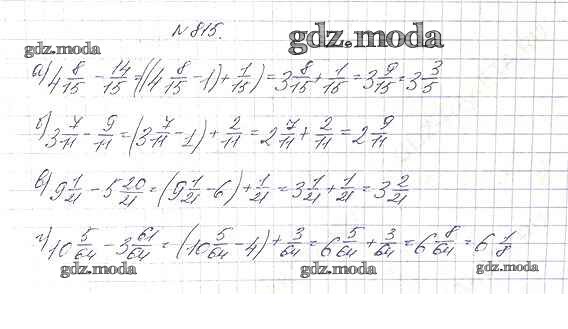 № 815.
gdz.moda
gdz.moda
а) 4 8/15 - 14/15 = ((4 8/15 - 1) + 1/15) = 3 8/15 + 1/15 = 3 9/15 = 3 3/5
б) 3 7/11 - 9/11 = (3 7/11 - 1) + 2/11 = 2 7/11 + 2/11 = 2 9/11
в) 9 1/21 - 5 20/21 = (9 1/21 - 6) + 1/21 = 3 1/21 + 1/21 = 3 2/21
г) 10 5/64 - 3 61/64 = (10 5/64 - 4) + 3/64 = 6 5/64 + 3/64 = 6 8/64 = 6 1/8
gdz.moda gdz.moda gdz.moda